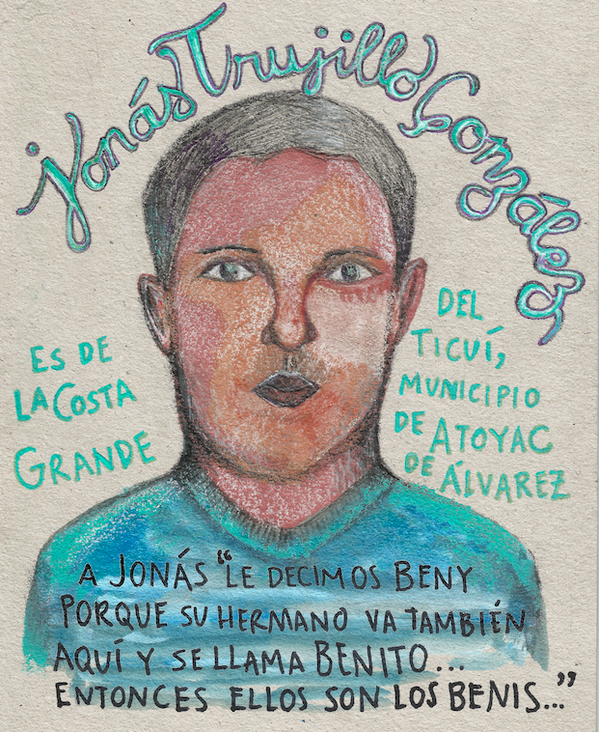 Jonás Trujillo González
ES DE
LA COSTA
GRANDE
DEL
TICUÍ,
MUNICIPIO
DE ATOYAC
DE ÁLVAREZ
A JONÁS “LE DECIMOS BENY
PORQUE SU HERMANO VA TAMBIÉN
AQUÍ Y SE LLAMA BENITO...
ENTONCES ELLOS SON LOS BENIS...”